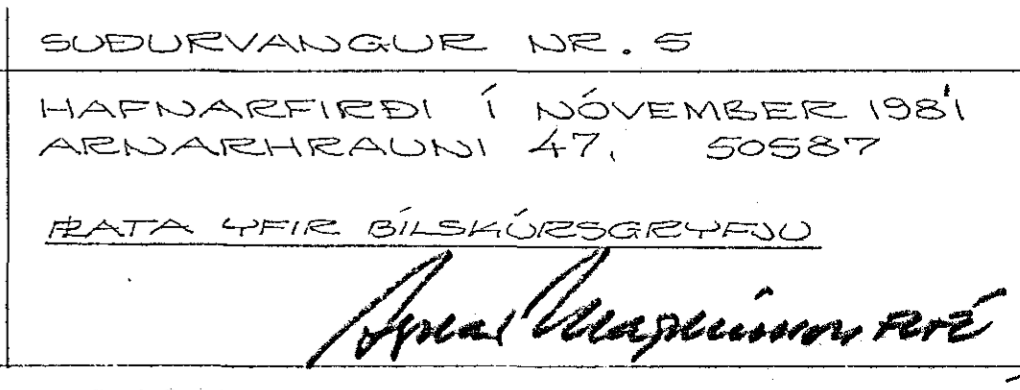 SUÐURVANGUR NR. 5
HAFNARFIRÐI Í NÓVEMBER 1981
ARNARHRAUNI 47, 50587
PLATA YFIR BÍLSKÚRSGRYFJU